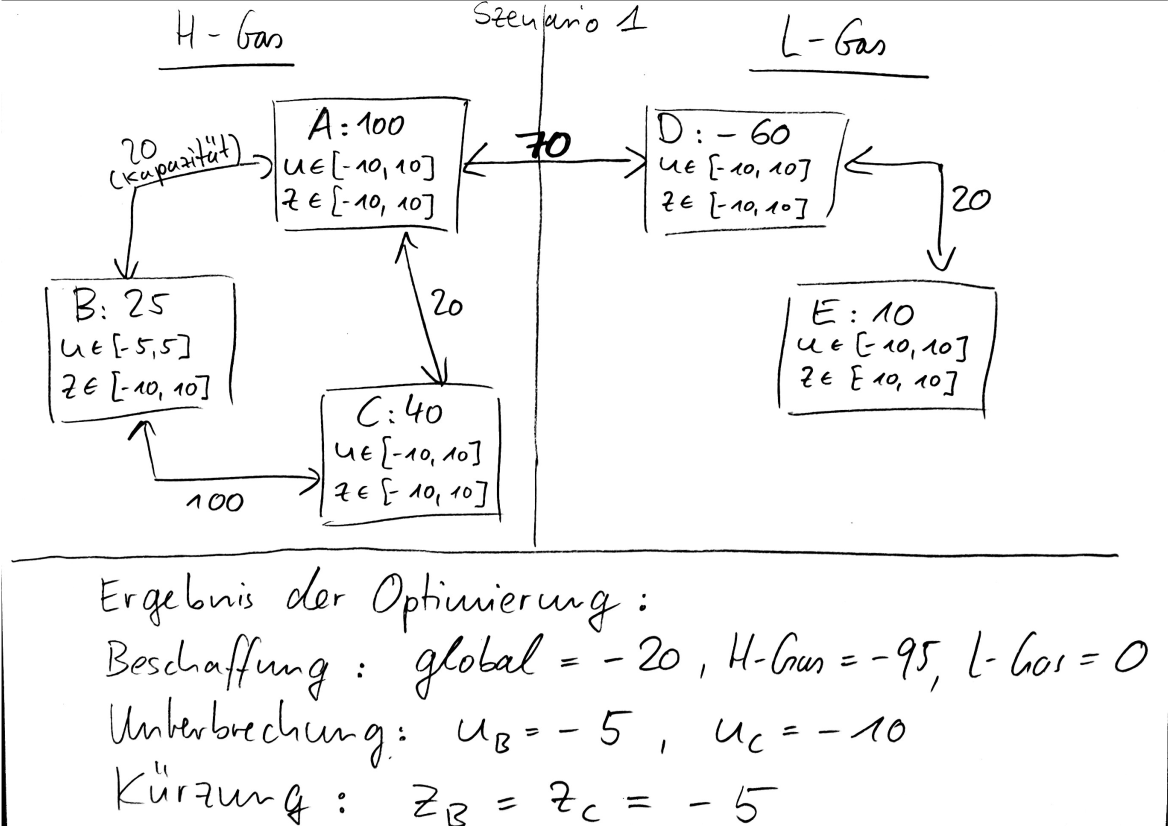 Szenario 1
H-Gas
L-Gas
A: 100
u ∈ [-10, 10]
z ∈ [-10, 10]
20
(Kapazität)
70
D: -60
u ∈ [-10, 10]
z ∈ [-10, 10]
20
B: 25
u ∈ [-5,5]
z ∈ [-10, 10]
20
E: 10
u ∈ [-10, 10]
z ∈ [10, 10]
C: 40
u ∈ [-10, 10]
z ∈ [-10, 10]
100
Ergebnis der Optimierung:
Beschaffung: global = -20, H-Gas = -95, L-Gas = 0
Unterbrechung: u_B = -5, u_C = -10
Kürzung: z_B = z_C = -5